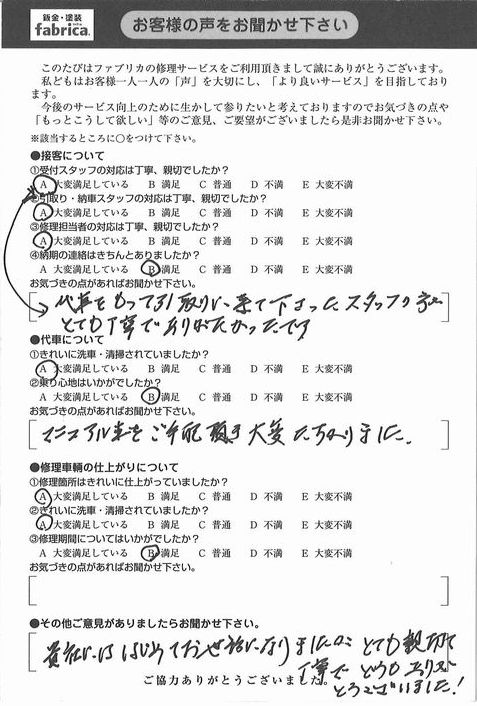 鈑金・塗装
fabrica.
お客様の声をお聞かせ下さい
このたびはファブリカの修理サービスをご利用頂きまして誠にありがとうございます。
私どもはお客様一人一人の「声」を大切にし、「より良いサービス」を目指しており
ます。
今後のサービス向上のために生かして参りたいと考えておりますのでお気づきの点や
「もっとこうして欲しい」等のご意見、ご要望がございましたら是非お聞かせ下さい。
※該当するところに○をつけて下さい。
●接客について
①受付スタッフの対応は丁寧、親切でしたか?
A 大変満足している B 満足 C 普通 D 不満 E 大変不満
②引取り・納車スタッフの対応は丁寧、親切でしたか?
A 大変満足している B 満足 C 普通 D 不満 E 大変不満
③修理担当者の対応は丁寧、親切でしたか?
A 大変満足している B 満足 C 普通 D 不満 E 大変不満
④納期の連絡はきちんとありましたか?
A 大変満足している B 満足 C 普通 D 不満 E 大変不満
お気づきの点があればお聞かせ下さい。
代車をもって引取りに来て下さったスタッフの
とても丁寧でありがたかったです
●代車について
①きれいに洗車・清掃されていましたか?
A 大変満足している B 満足 C 普通 D 不満 E 大変不満
②乗り心地はいかがでしたか?
A 大変満足している B 満足 C 普通 D 不満 E 大変不満
お気づきの点があればお聞かせ下さい。
マニュアル車をご手配頂き大変たすかりました.
●修理車輌の仕上がりについて
①修理箇所はきれいに仕上がっていましたか?
A 大変満足している B 満足 C 普通 D 不満 E 大変不満
②きれいに洗車・清掃されていましたか?
A 大変満足している B 満足 C 普通 D 不満 E 大変不満
③修理期間についてはいかがでしたか?
A 大変満足している B 満足 C 普通 D 不満 E 大変不満
お気づきの点があればお聞かせ下さい。
●その他ご意見がありましたらお聞かせ下さい。
貴社にははじめてお世話になりましたが とても親切で
丁寧で どうもありが
とうございました!
ご協力ありがとうございました。